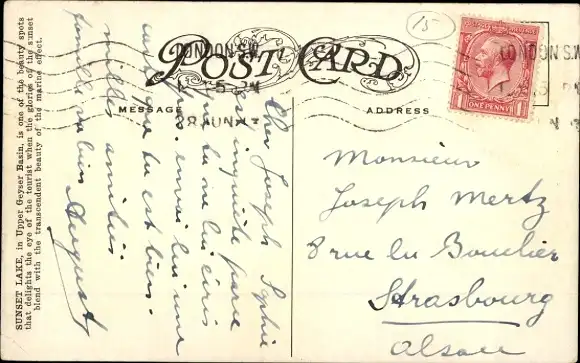 15
POST CARD
LONDON S.W.
LONDON S.W.
5 - PM
28 JUN
MESSAGE
ADDRESS
ONE PENNY
Cher Joseph Sophie
est inquiète parce
tu ne lui écris
envoi lui une
carte que tu est bien.
milles amitiés
famille va bien August
Monsieur
Joseph Mertz
8 rue du Bouclier
Strasbourg
Alsace
SUNSET LAKE, in Upper Geyser Basin, is one of the beauty spots
that delights the eye of the tourist when the glories of the sunset
blend with the transcendent beauty of the marine effect.